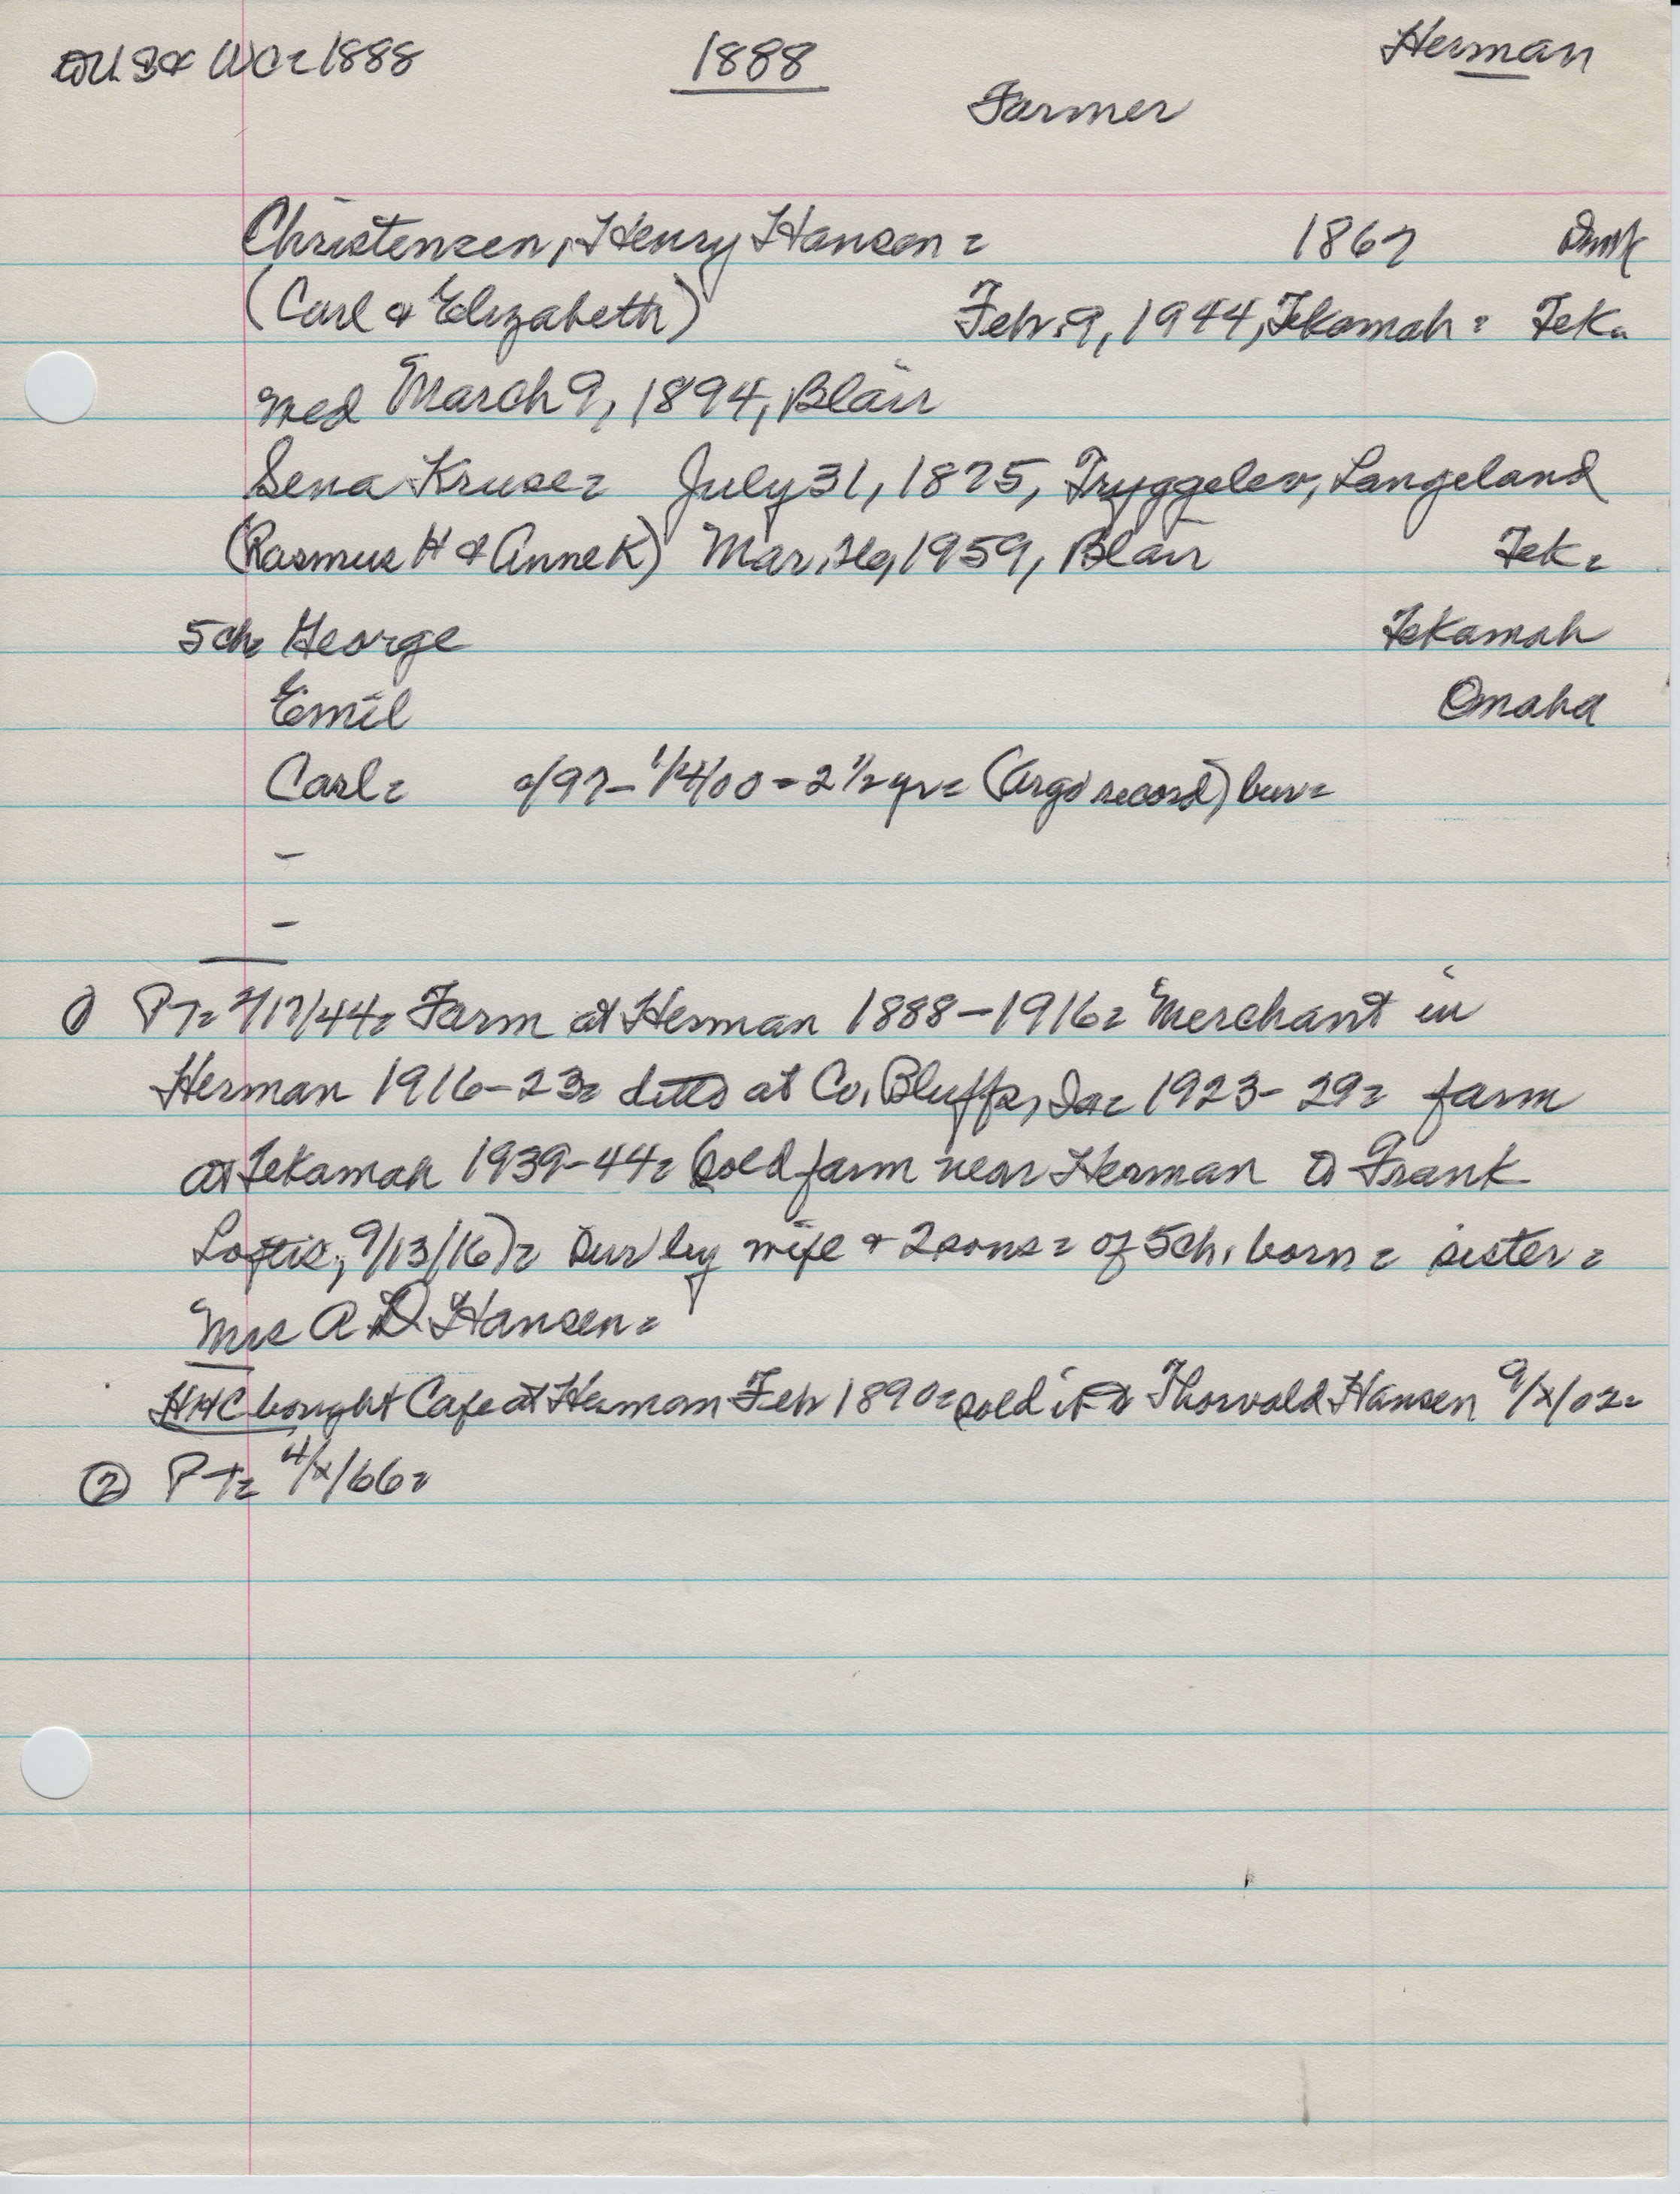 US & WC= 1888 1888 Herman
Farmer
Christensen, Henry Hansen= 1867 Dmk
(Carl & Elizabeth) Feb. 9, 1944, Tekamah= Tek=
med March 9, 1894, Blair
Sena Kruse= July 31, 1875, Tryggelev, Langeland
(Rasmus H & Anne K) Mar. 1959, Blair Tek=
5 ch= George Tekamah
Emil Omaha
Carl= c/97- 1/4/00 = 2 1/2 yr= (Argo record) bur=
-
-
① PT= 2/17/44= Farm at Herman 1888-1916= Merchant in
Herman 1916-23= ditto at Co. Bluffs, Ia= 1923-29= farm
at Tekamah 1939-44= (sold farm near Herman to Frank
Loftis, 9/13/16)= Sur by wife & 2 sons= of 5 ch. born= sister=
Mrs A.D. Hansen=
HHC bought Cafe at Herman Feb 1890= sold it to Thorvald Hansen 9/x/02=
② PT= 4/x/66=